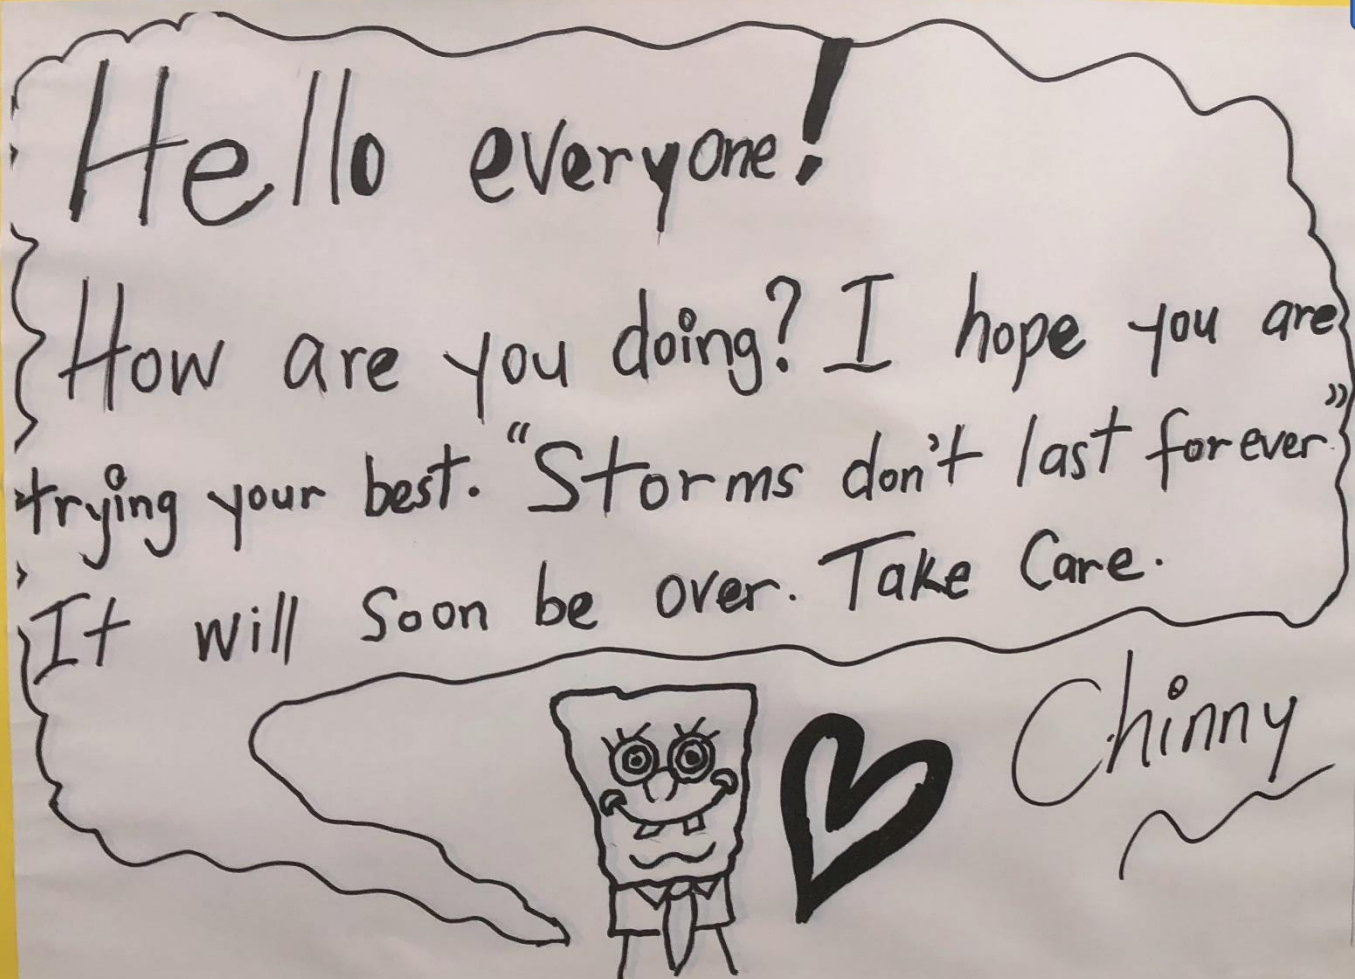 Hello everyone!
How are you doing? I hope you are
trying your best. "Storms don't last forever."
It will Soon be over. Take Care.
Chinny